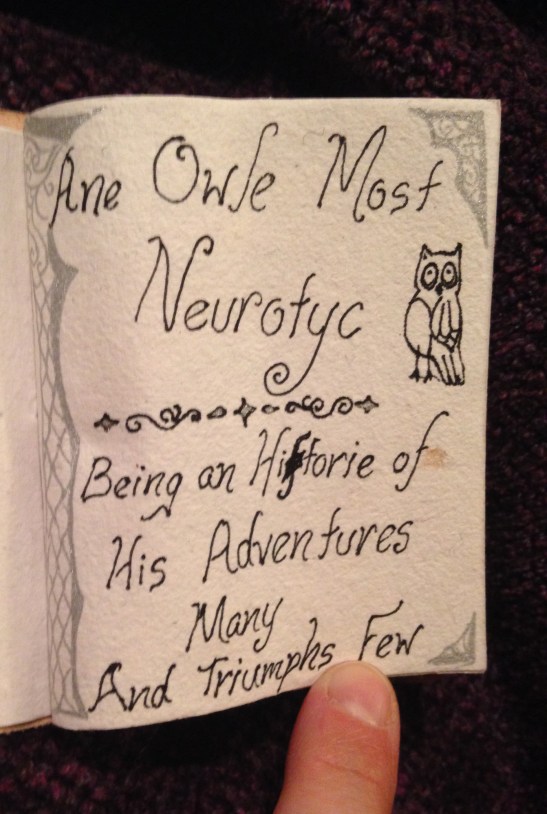 Ane Owle Most
Neurotyc
Being an Hiſtorie of
His Adventures
Many
And Triumphs Few